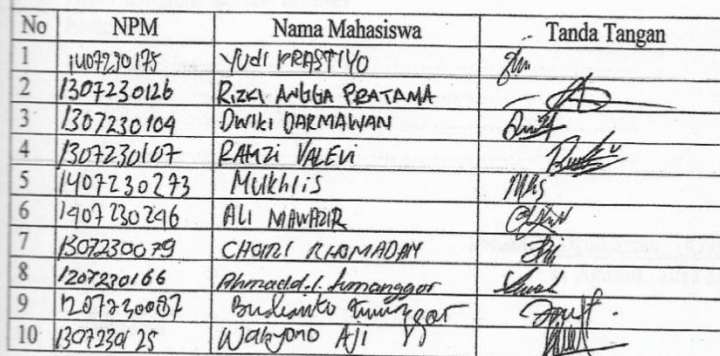 No NPM Nama Mahasiswa Tanda Tangan
1 1407230175 Yudi PRASTIYO
2 1307230126 RIZKI ANGGA PRATAMA
3 1307230104 DWIKI DARMAWAN
4 1307230107 RAMZI VALEVI
5 1407230273 Mukhlis
6 1407230246 ALI MAWAZIR
7 1307230079 CHOIRI RHOMADAN
8 1207230166
9 1207230087
10 1307230125 Wahyono Aji